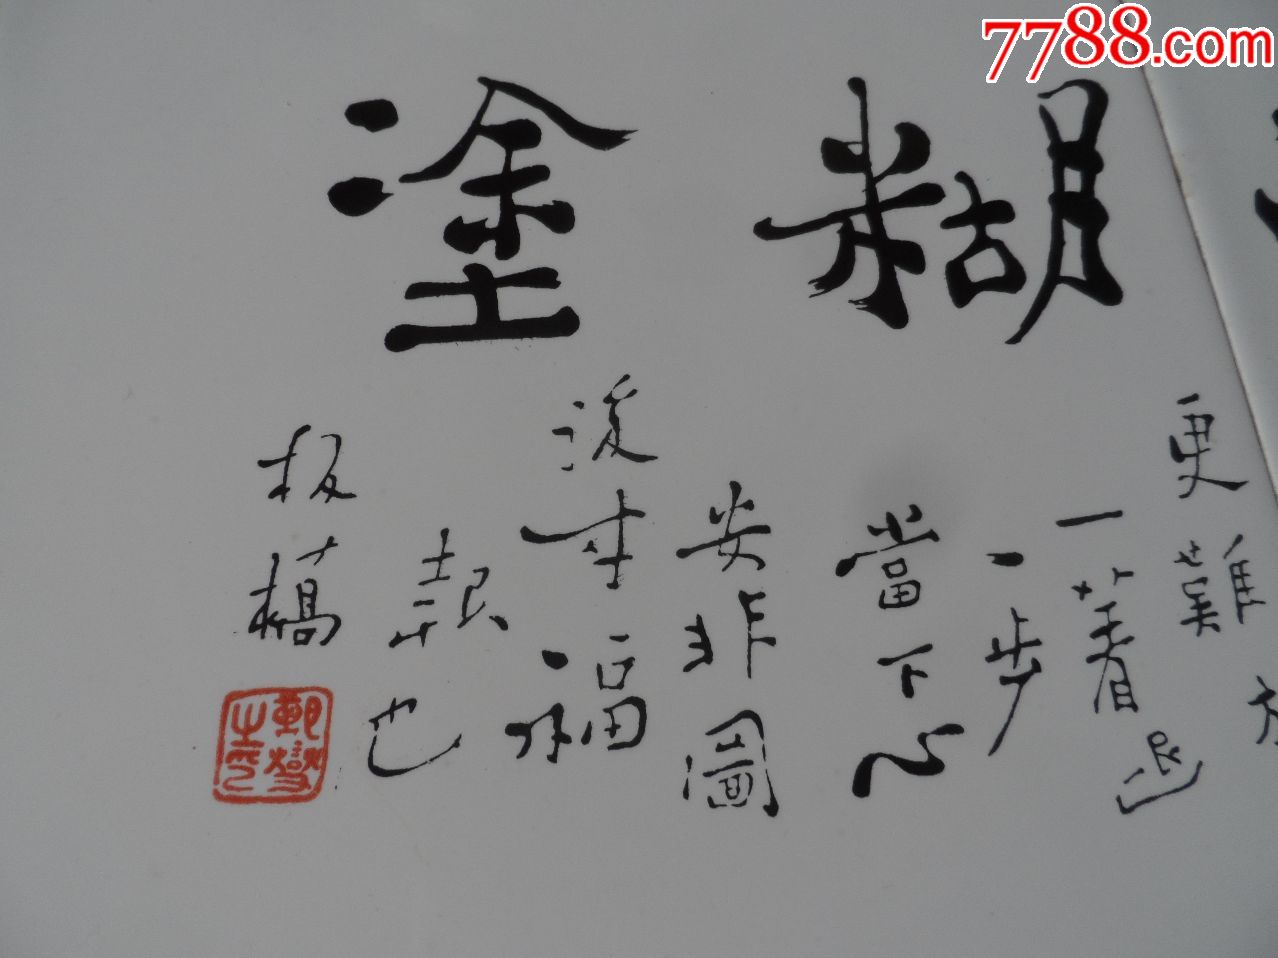 7788.com
糊塗
更難放
一著退
一步
當下心
安非圖
後來福
報也
板橋
鄭燮之印